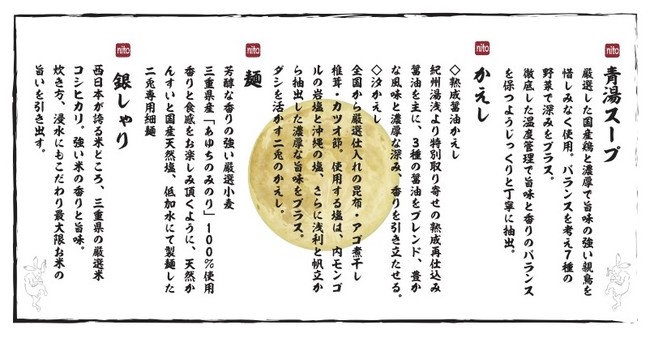 nito
青湯スープ
厳選した国産鶏と濃厚で旨味の強い親鳥を
惜しみなく使用。バランスを考え7種の
野菜で深みをプラス。
徹底した温度管理で旨味と香りのバランス
を保つようじっくりと丁寧に抽出。
nito
かえし
◇熟成醤油かえし
紀州湯浅より特別取り寄せの熟成再仕込み
醤油を主に、3種の醤油をブレンド、豊か
な風味と濃厚な深み、香りを引き立たせる。
◇汐かえし
全国から厳選仕入れの昆布・アゴ煮干し
椎茸・カツオ節。使用する塩は、内モンゴ
ルの岩塩と沖縄の塩、さらに浅利と帆立か
ら抽出した濃厚な旨味をプラス。
ダシを活かす二兎のかえし。
nito
麺
芳醇な香りの強い厳選小麦
三重県産「あゆちのみのり」100%使用
香りと食感をお楽しみ頂くように、天然か
んすいと国産天然塩、低加水にて製麺した
二兎専用細麺
nito
銀しゃり
西日本が誇る米どころ、三重県の厳選米
コシヒカリ。強い米の香りと旨味。
炊き方、浸水にもこだわり最大限お米の
旨いを引き出す。